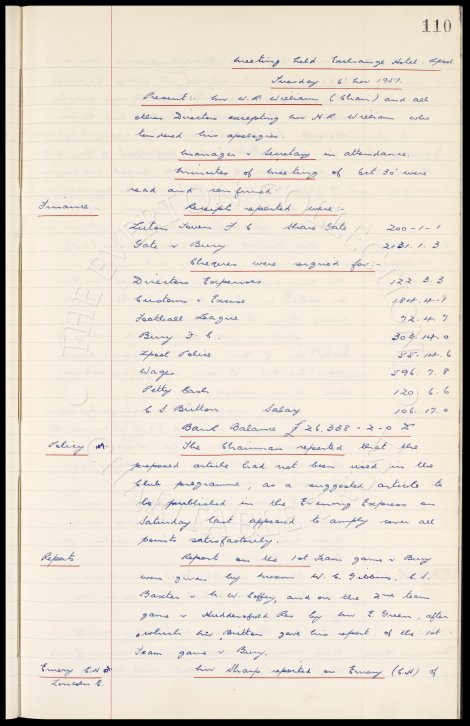 110
Meeting held Exchange Hotel. Lpool
Tuesday 6 Nov 1951.
Present:- Mr W.R. Williams (Chair) and all
other Directors excepting Mr H.R. William who
tendered his apologies.
Manager & Secretary in attendance.
Minutes of Meeting of Oct 30 were
read and confirmed
Finance. Receipts reported were:-
Luton Town F.C Share Gate 200-1-1
Gate v Bury 2131.1.3
Cheques were signed for:-
Directors Expenses 122.3.3
Customs & Excise 1814.4.9
Football League 72.4.7
Bury F.C. 303.14.0
Lpool Police 55.14.6
Wages 596.7.8
Petty Cash 120.6.6
C.S. Britton Salary 106.17.0
Bank Balance £26,338-2-0
Policy The Chairman reported that the
proposed article had not been used in the
Club programme, as a suggested article to
be published in the Evening Express on
Saturday last appeared to amply cover all
points satisfactorily.
Reports Report on the 1st Team game v Bury
were given by Messrs W.C. Gibbins, C.S.
Baxter & N.W. Coffey, and on the 2nd team
game v Huddersfield Res by Mr E Green, after
which Mr Britton gave his report of the 1st
Team game v Bury.
Emery C.H Mr Sharp reported on Emery (C.H) of
Lincoln C.